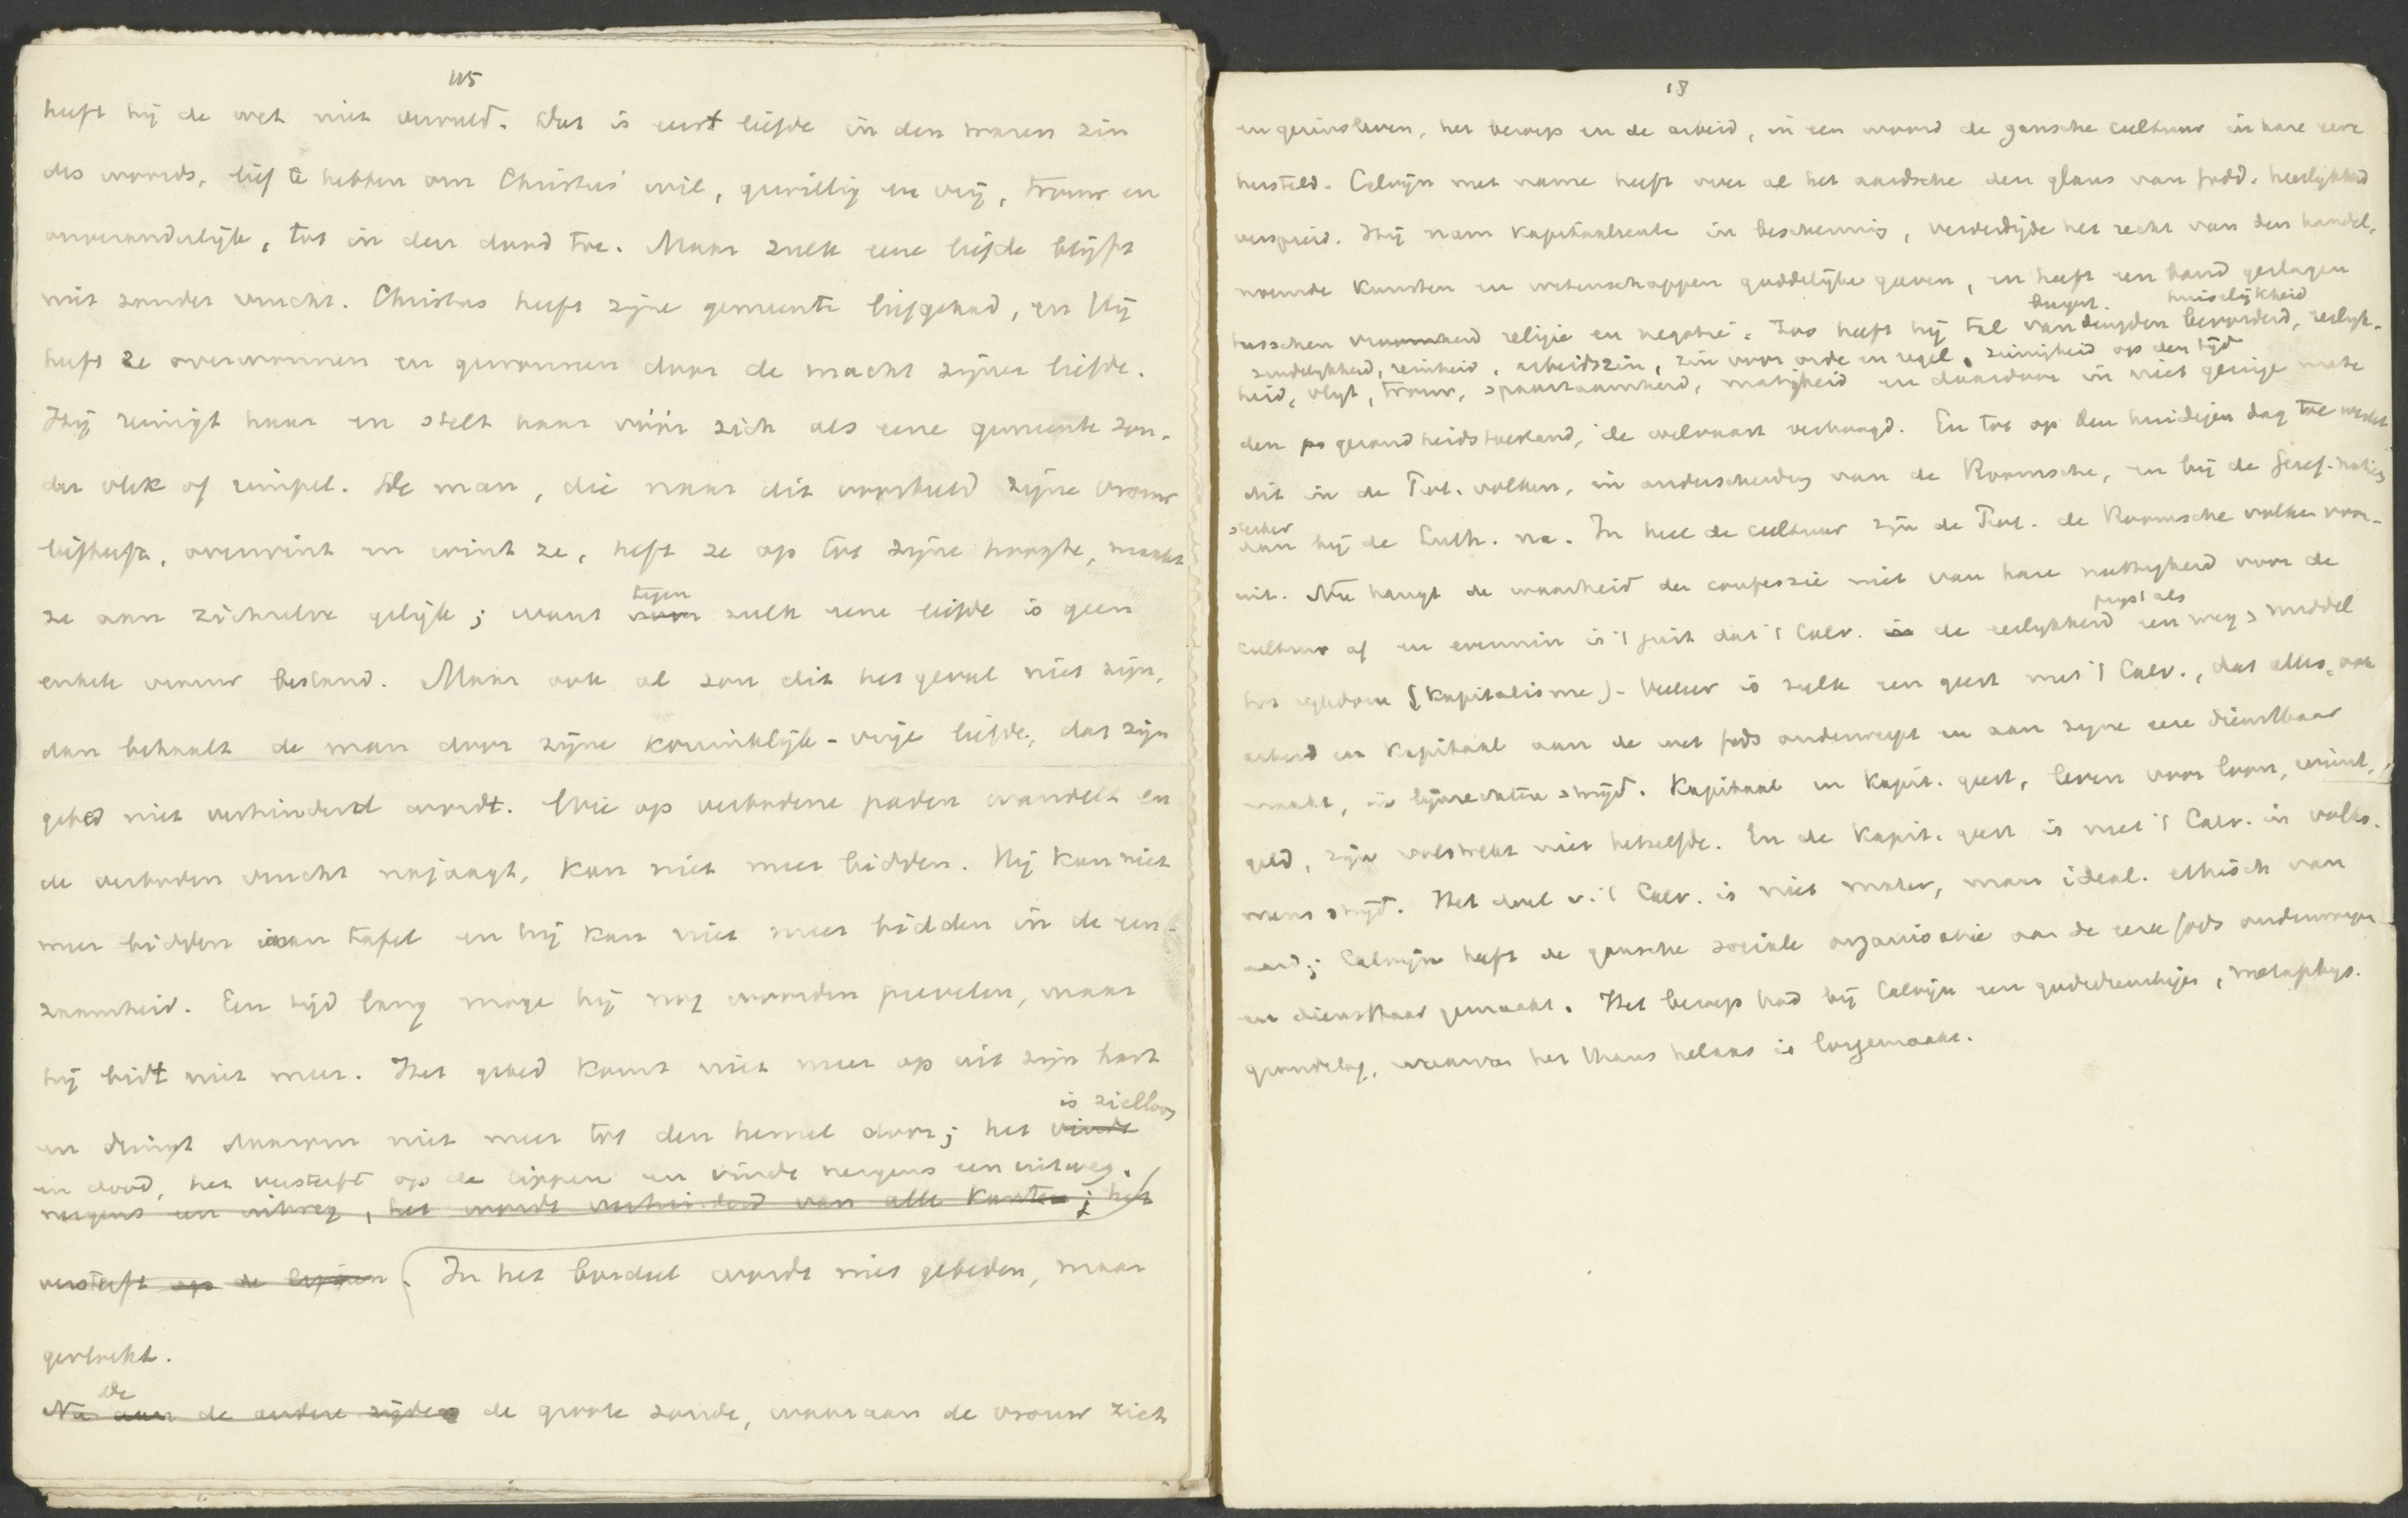 115
heeft hij de wet niet vervuld. Dat is eerst liefde in den waren zin
des woords, lief te hebben om Christus' wil, gewillig en vrij, trouw en
onveranderlijk, tot in den dood toe. Maar zulk eene liefde blijft
niet zonder vrucht. Christus heeft zijne gemeente liefgehad, en Hij
heeft ze overwonnen en gewonnen door de macht zijner liefde.
Hij reinigt haar en stelt haar vóór zich als eene gemeente zon-
der vlek of rimpel. De man, die naar dit voorbeeld zijne vrouw
liefheeft, overwint en wint ze, heft ze op tot zijne hoogte, maakt
tegen
ze aan zichzelve gelijk; want voor zulk eene liefde is geen
enkele vrouw bestand. Maar ook al zou dit het geval niet zijn,
dan behaalt de man door zijne koninklijk-vrije liefde, dat zijn
gebed niet verhinderd wordt. Wie op verbodene paden wandelt en
de verboden vrucht najaagt, kan niet meer bidden. Hij kan niet
meer bidden aan tafel en hij kan niet meer bidden in de een-
zaamheid. Een tijd lang moge hij nog woorden prevelen, maar
hij bidt niet meer. Het gebed komt niet meer op uit zijn hart
is zielloos
en dringt daarom niet meer tot den hemel door; het vindt
en dood, het versterft op de lippen en vindt nergens een uitweg.
nergens een uitweg, het wordt verhinderd van alle kanten; het
versterft op de lippen. In het bordeel wordt niet gebeden, maar
gevloekt.
De
Nu aan de andere zijde de groote zonde, waaraan de vrouw zich
18
en gezinsleven, het beroep en de arbeid, in een woord de gansche cultuur in hare eere
hersteld. Calvijn met name heeft over al het aardsche den glans van Godd. heerlijkheid
verspreid. Hij nam kapitaalrente in bescherming, verdedigde het recht van den handel,
noemde kunsten en wetenschappen goddelijke gaven, en heeft een band geslagen
burgerl. huiselijkheid
tusschen vroomheid religie en negotie. Zoo heeft hij tal van deugden bevorderd, eerlijk-
zindelijkheid, reinheid, arbeidszin, zin voor orde en regel, zuinigheid op den tijd
heid, vlijt, trouw, spaarzaamheid, matigheid en daardoor in niet geringe mate
den gezondheidstoestand, de welvaart verhoogd. En tot op den huidigen dag toe werkt
dit in de Prot. volken, in onderscheiding van de Roomsche, en bij de Geref. naties
sterker
dan bij de Luth. na. In heel de cultuur zijn de Prot. de Roomsche volken voor-
uit. Nu hangt de waarheid der confessie niet van hare nuttigheid voor de
cultuur af en evenmin is 't juist dat 't Calv. in de eerlijkheid een weg, middel
tot rijkdom (kapitalisme). Veeleer is zulk een geest met 't Calv., dat alles, ook
arbeid en kapitaal aan de wet Gods onderwerpt en aan zijne eere dienstbaar
maakt, in lijnrechten strijd. Kapitaal en kapit. geest, leven voor loon, winst,
geld, zijn volstrekt niet hetzelfde. En de kapit. geest is met 't Calv. in volko-
men strijd. Het doel v. 't Calv. is niet mater, maar ideal. ethisch van
aard; Calvijn heeft de gansche sociale organisatie aan de eere Gods onderworpen
en dienstbaar gemaakt. Het beroep had bij Calvijn een godsdienstigen, metaphys.
grondslag, waarvan het thans helaas is losgemaakt.